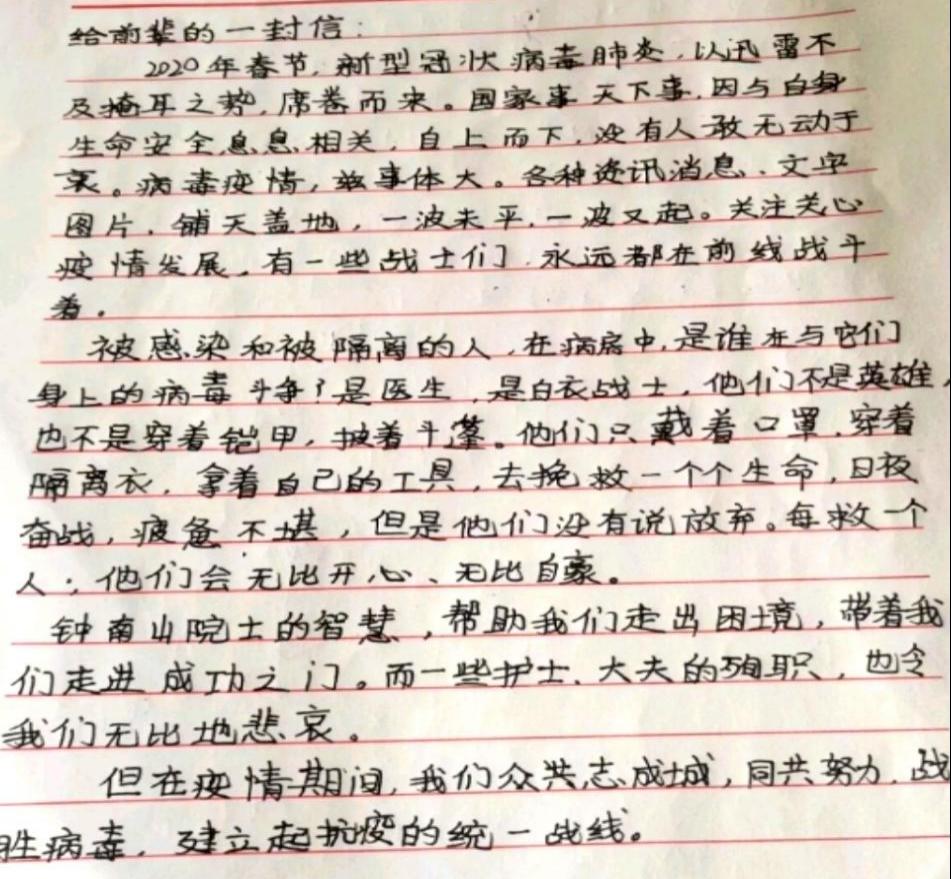 给前辈的一封信：
2020年春节，新型冠状病毒肺炎，以迅雷不
及掩耳之势，席卷而来。国家事天下事，因与自身
生命安全息息相关，自上而下，没有人敢无动于
衷。病毒疫情，兹事体大。各种资讯消息、文字
图片，铺天盖地，一波未平，一波又起。关注关心
疫情发展，有一些战士们，永远都在前线战斗
着。
被感染和被隔离的人，在病房中，是谁在与它们
身上的病毒斗争？是医生，是白衣战士，他们不是英雄，
也不是穿着铠甲，披着斗篷。他们只戴着口罩，穿着
隔离衣，拿着自己的工具，去挽救一个个生命，日夜
奋战，疲惫不堪，但是他们没有说放弃。每救一个
人，他们会无比开心、无比自豪。
钟南山院士的智慧，帮助我们走出困境，带着我
们走进成功之门。而一些护士、大夫的殉职，也令
我们无比地悲哀。
但在疫情期间，我们众共志成城，同共努力，战
胜病毒，建立起抗疫的统一战线。